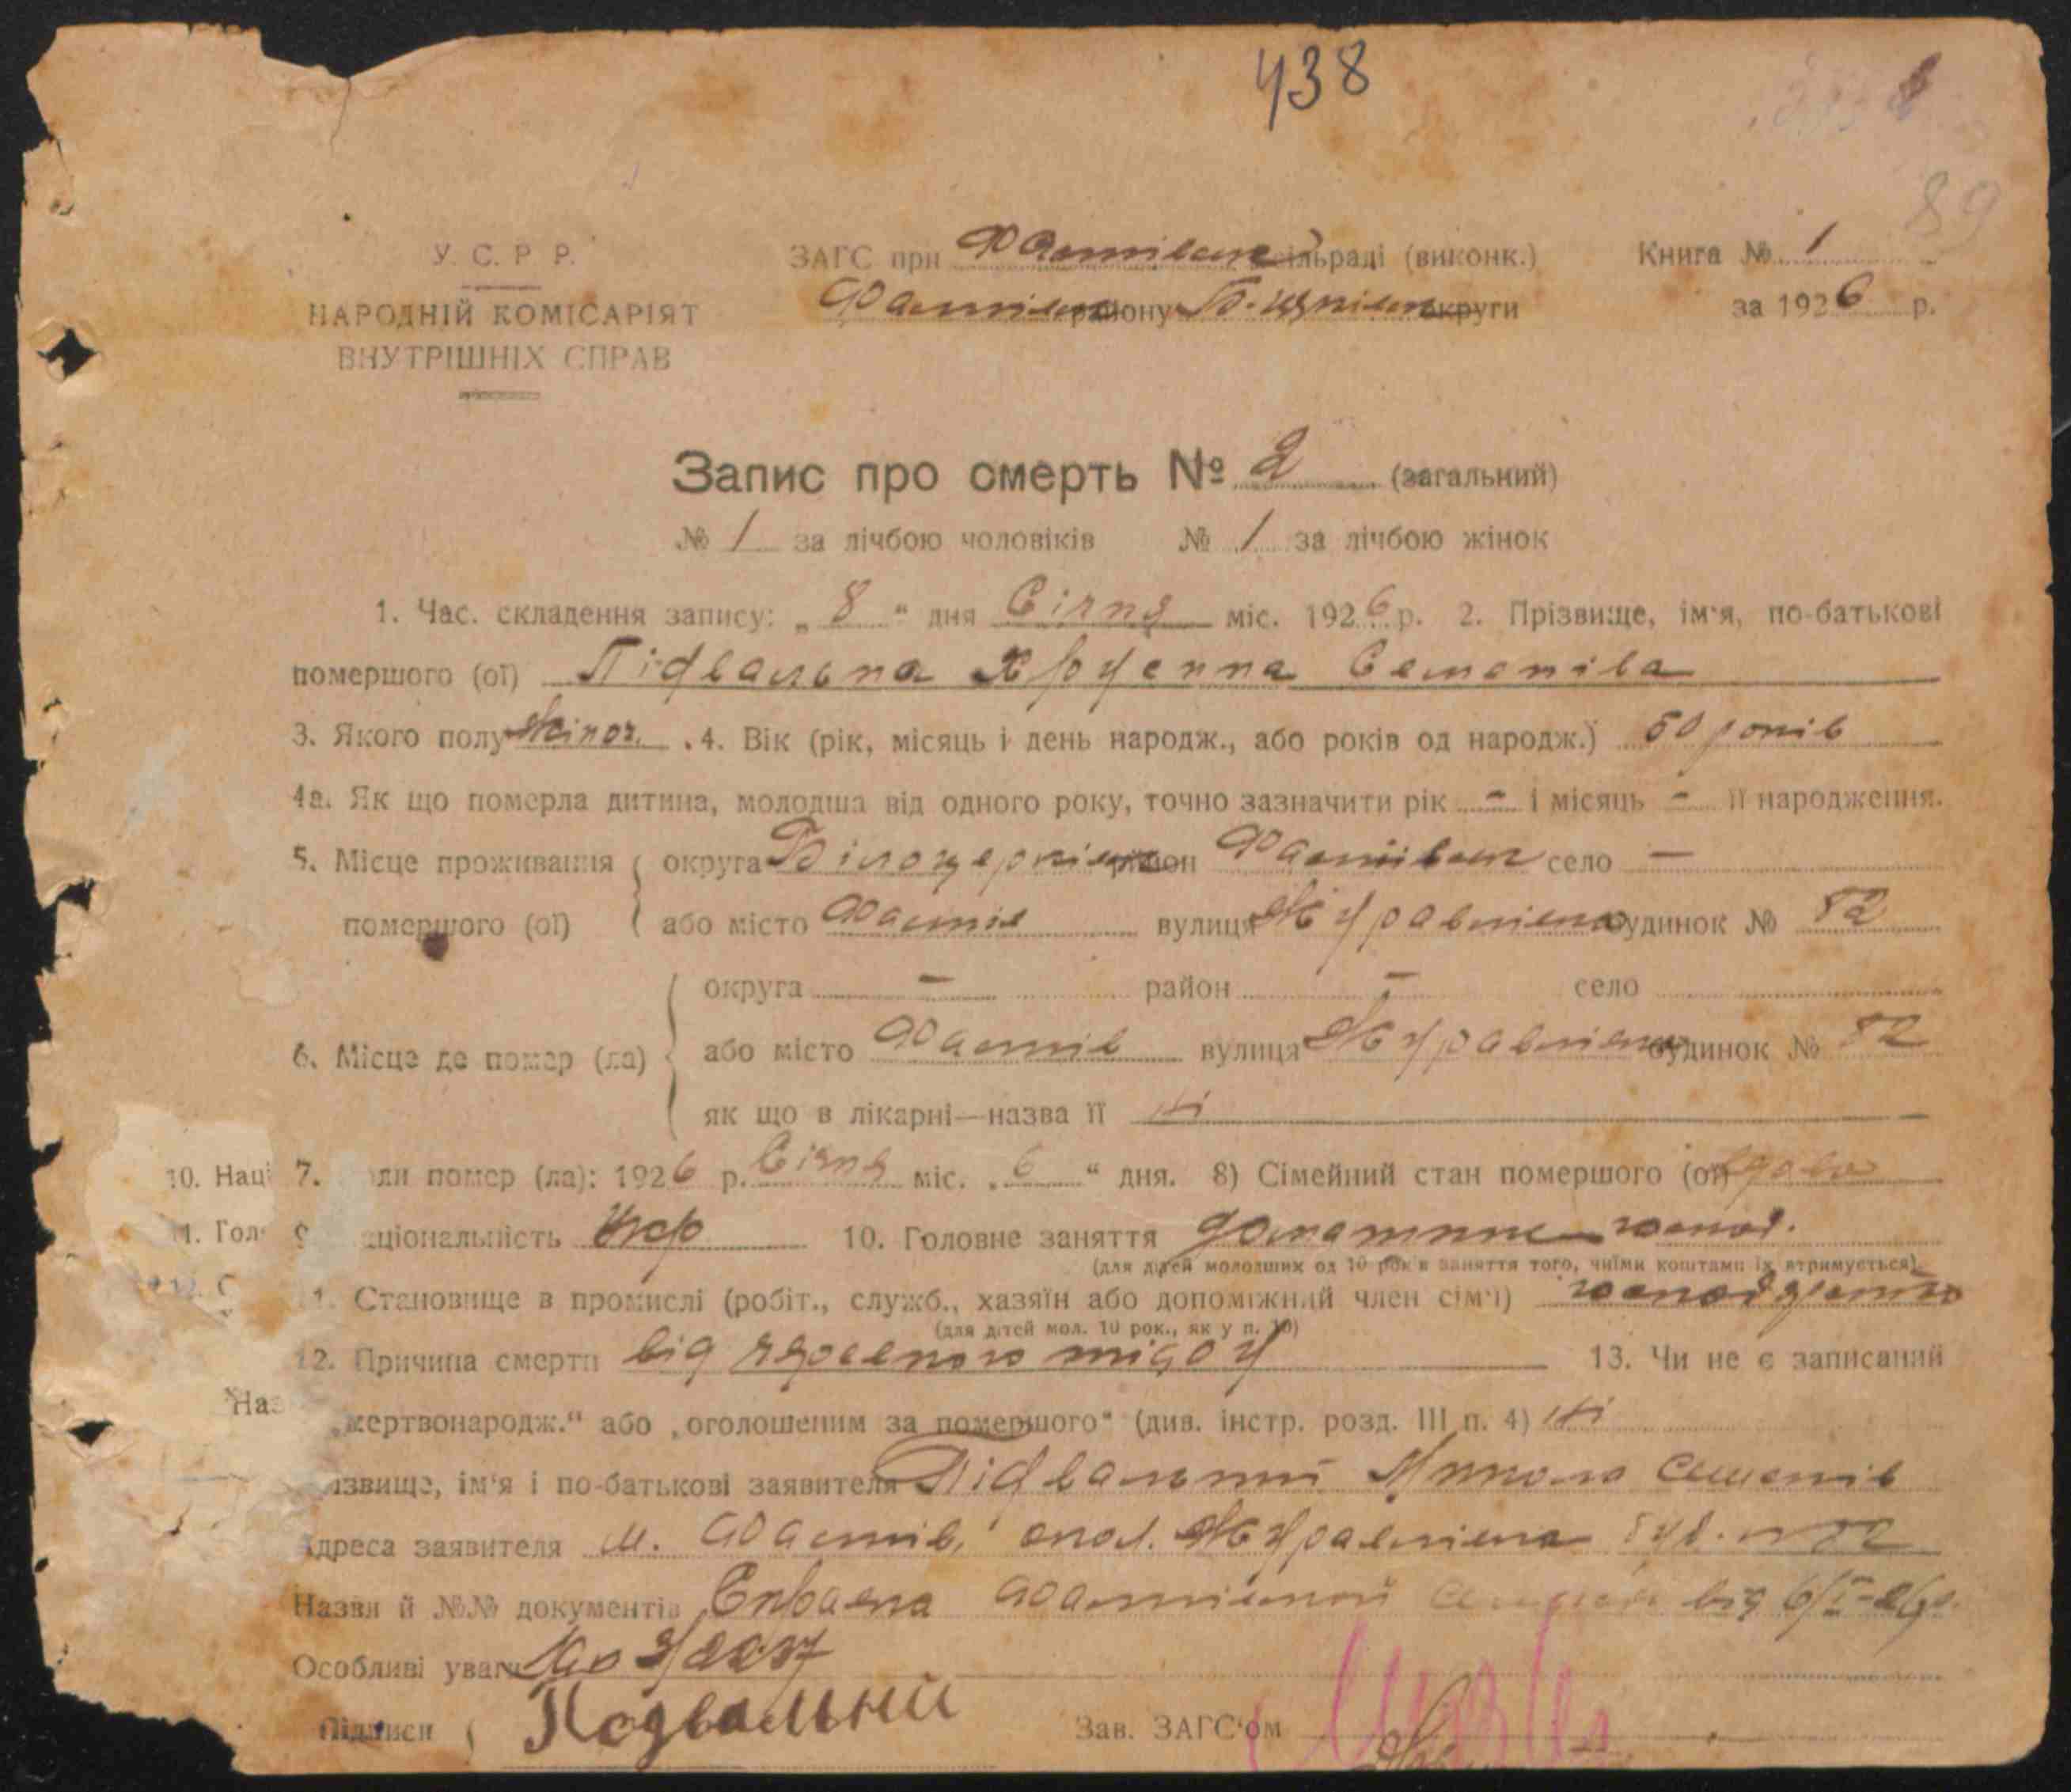 438
89
У. С. Р Р. ЗАГС при Фастівськ сільраді (виконк.) Книга № 1
НАРОДНІЙ КОМІСАРІЯТ Фастівськ району Б-церківськ округи за 1926 р.
ВНУТРІШНІХ СПРАВ
Запис про смерть № 2 (загальний)
№ 1 за лічбою чоловіків № 1 за лічбою жінок
1. Час. складення запису: „ 8 “ дня Січня міс. 1926 р. 2. Прізвище, ім'я, по-батькові
помершого (ої) Підвальна Семенівa
3. Якого полу жіноч. 4. Вік (рік, місяць і день народж., або років од народж.) 50 років
4а. Як що померла дитина, молодша від одного року, точно зазначити рік - і місяць - її народження.
5. Місце проживання округа Білоцерківськ район Фастівськ село —
помершого (ої) або місто Фастів вулиця Журавлівська будинок № 52
округа — район — село
6. Місце де помер (ла) або місто Фастів вулиця Журавлівська будинок № 52
як що в лікарні—назва її Ні
10. Наці 7. оли помер (ла): 1926 р. Січня міс. „ 6 “ дня. 8) Сімейний стан помершого (ої) вдова
11. Гол 9 аціональність Укр 10. Головне заняття домашнє госпо.
(для дітей молодших од 10 років заняття того, чиїми коштами їх втримується)
1. Становище в промислі (робіт., служб., хазяїн або допоміжний член сім'ї)
(для дітей мол. 10 рок., як у п. 10)
12. Причина смерти від 13. Чи не є записаний
Наз „мертвонародж.“ або „оголошеним за помершого“ (див. інстр. розд. III п. 4) Ні
ізвище, ім'я і по-батькові заявителя Підвальний Микола Семенів
Адреса заявителя м. Фастів, Журавлівка буд. № 52
Назви й №№ документів Фастівської від 6/I-26р.
Особливі уваги
Підписи Подвальний Зав. ЗАГС'ом